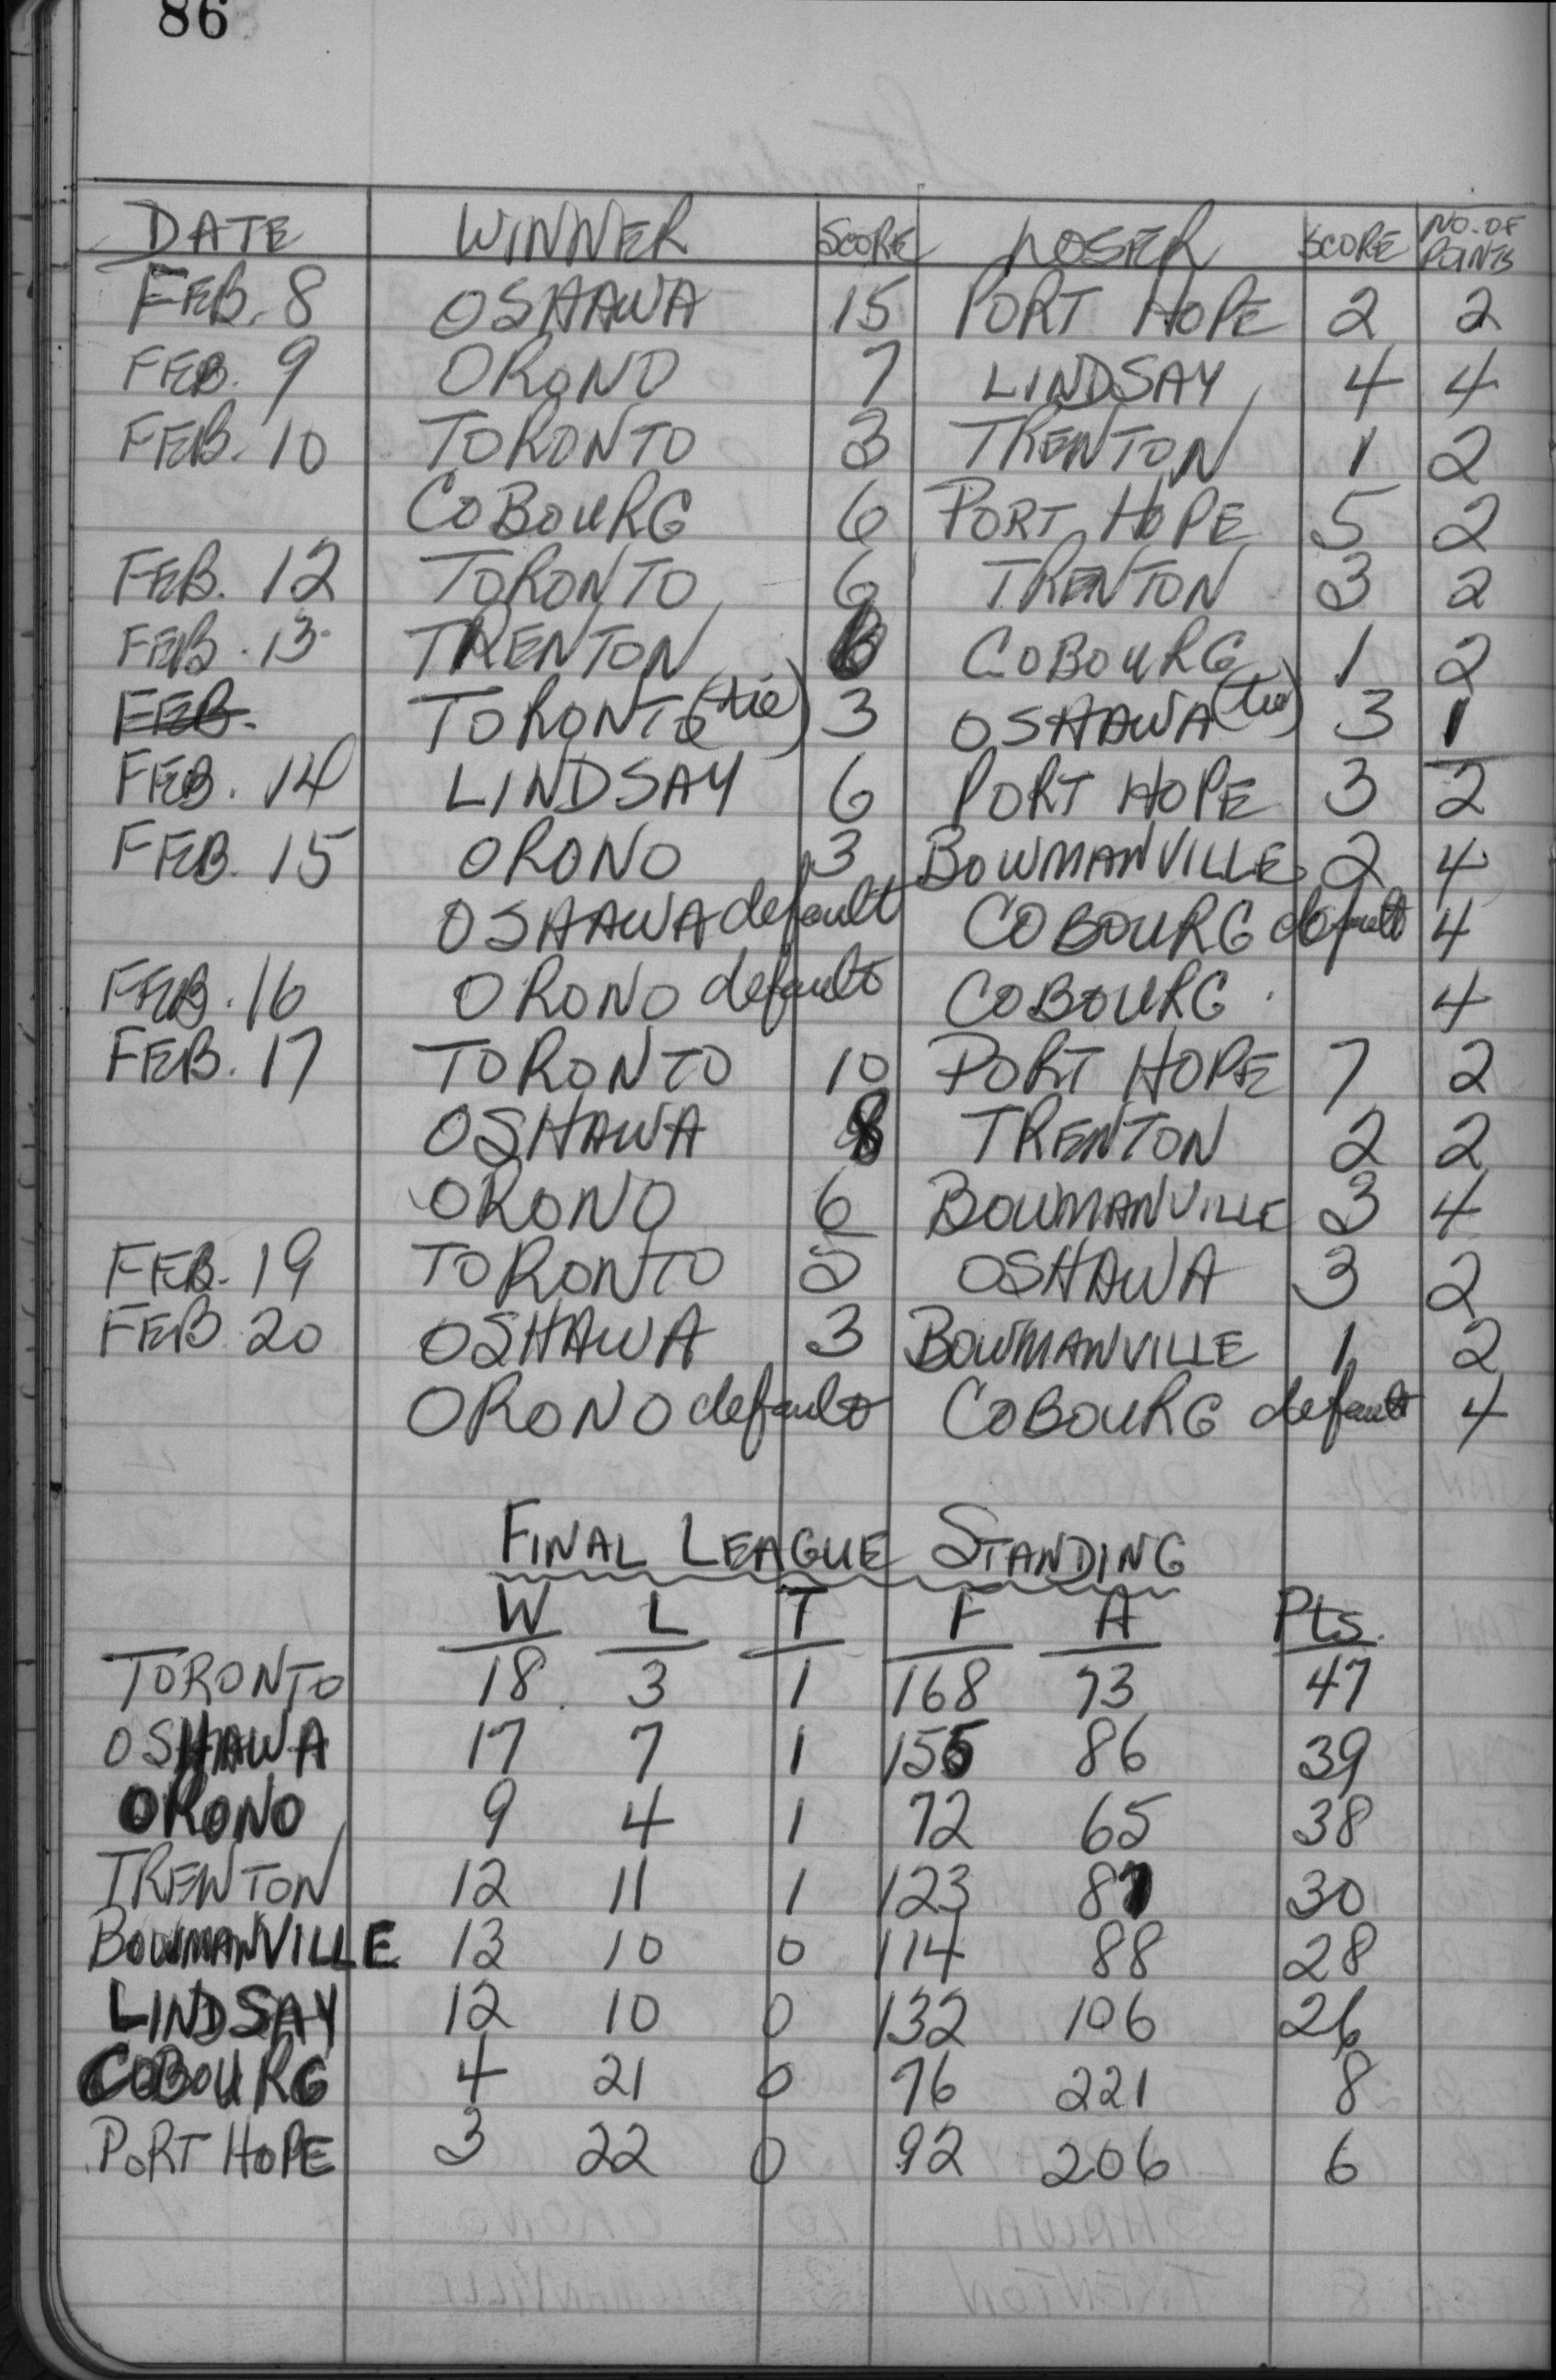 86
DATE WINNER SCORE LOSER SCORE NO. OF POINTS
FEB. 8 OSHAWA 15 PORT HOPE 2 2
FEB. 9 ORONO 7 LINDSAY 4 4
FEB. 10 TORONTO 3 TRENTON 1 2
COBOURG 6 PORT HOPE 5 2
FEB. 12 TORONTO 6 TRENTON 3 2
FEB. 13 TRENTON COBOURG 1 2
FEB. TORONTO (tie) 3 OSHAWA (tie) 3 1
FEB. 14 LINDSAY 6 PORT HOPE 3 2
FEB. 15 ORONO 3 BOWMANVILLE 2 4
OSHAWA default COBOURG default 4
FEB. 16 ORONO default COBOURG 4
FEB. 17 TORONTO 10 PORT HOPE 7 2
OSHAWA 8 TRENTON 2 2
ORONO 6 BOWMANVILLE 3 4
FEB. 19 TORONTO 5 OSHAWA 3 2
FEB 20 OSHAWA 3 BOWMANVILLE 1 2
ORONO default COBOURG default 4
FINAL LEAGUE STANDING
W L T F A Pts.
TORONTO 18 3 1 168 73 47
OSHAWA 17 7 1 155 86 39
ORONO 9 4 1 72 65 38
TRENTON 12 11 1 123 87 30
BOWMANVILLE 13 10 0 114 88 28
LINDSAY 12 10 0 132 106 26
COBOURG 4 21 0 76 221 8
PORT HOPE 3 22 0 92 206 6